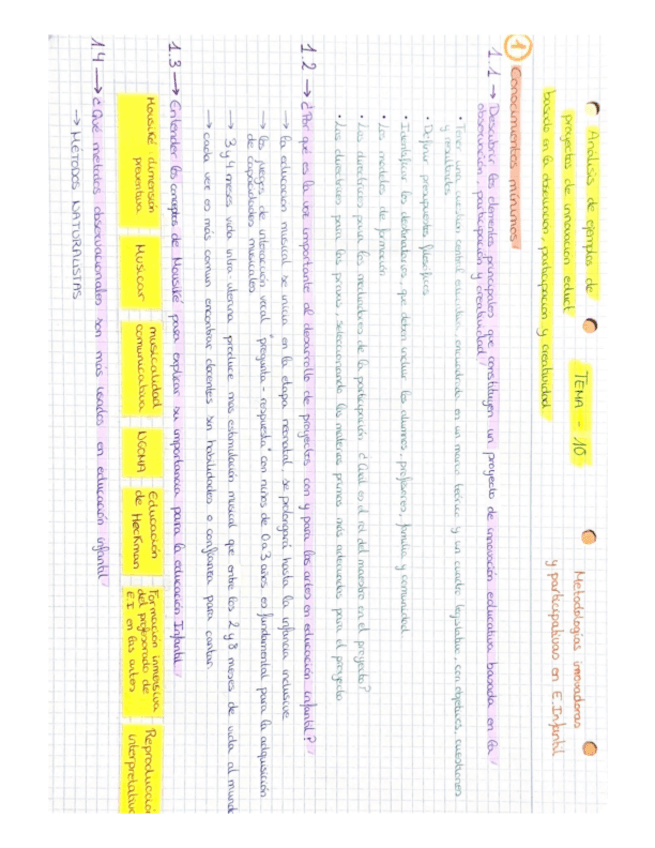 Análisis de ejemplos de
proyectos de innovacion educt
basado en la observación, participación y creatividad
TEMA - 10
Metodologías innovadoras
y participativas en E.Infantil
1 Conocimientos mínimos
1.1 → Describir los elementos principales que constituyen un proyecto de innovación educativa basada en la
observación, participación y creatividad
• Tener una cuestion central educativa, encuadrada en un marco teórico y un cuadro legislativo, con objetivos, cuestiones
y resultados
• Definir presupuestos filosoficos
• Identificar los destinatarios, que deben incluir los alumnos, profesores, familia y comunidad
• Los modelos de formación
• Las directrices para los mediadores de la participación ¿Cuál es el rol del maestro en el proyecto?
• Las directrices para la praxis, seleccionando las materias primas más adecuadas para el proyecto
1.2 → ¿Por qué es la voz importante al desarrollo de proyectos con y para las artes en educación infantil?
→ la educacion musical se inicia en la etapa neonatal, se prolongará hasta la infancia inclusive
→ los juegos de interacción vocal "pregunta - respuesta" con niños de 0 a 3 años es fundamental para la adquisición
de capacidades musicales
→ 3 y 4 meses vida intra-uterina produce mas estimulación musical que entre los 2 y 8 meses de vida al mundo
→ cada vez es más comun encontrar docentes sin habilidades o confianza para cantar
1.3 → Entender los conceptos de Mousiké para explicar su importancia para la educación Infantil
Mousiké: dimensión
Musicar
musicalidad
comunicativa
NGOMA
Educación
de Heckman
Formación inmersiva
del profesorado de
E.I en las artes
Reproducción
interpretativa
1.4 → ¿Qué metodos observacionales son más usados en educación infantil
→ MÉTODOS NATURALISTAS